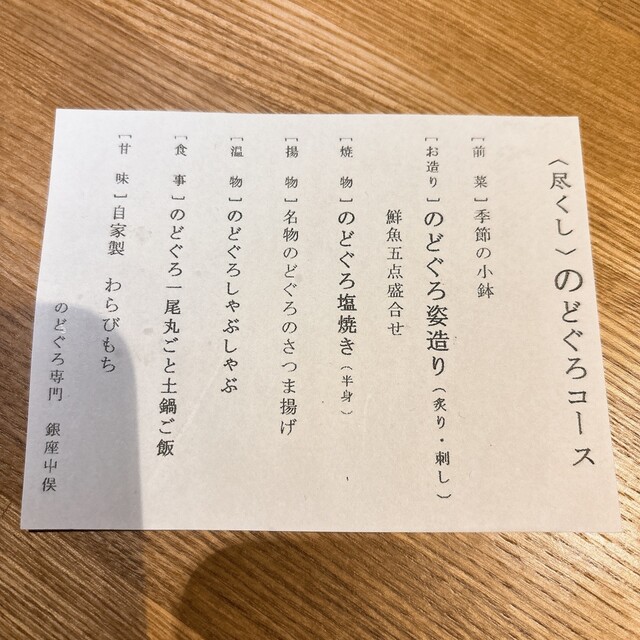 〈尽くし〉のどぐろコース
［前 菜］季節の小鉢
［お造り］のどぐろ姿造り（炙り・刺し）
鮮魚五点盛合せ
［焼 物］のどぐろ塩焼き（半身）
［揚 物］名物のどぐろのさつま揚げ
［温 物］のどぐろしゃぶしゃぶ
［食 事］のどぐろ一尾丸ごと土鍋ご飯
［甘 味］自家製 わらびもち
のどぐろ専門 銀座中俣